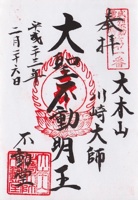 奉拝
大本山
川崎大師
大聖不動明王
不動堂
平成二十三年
二月二十六日